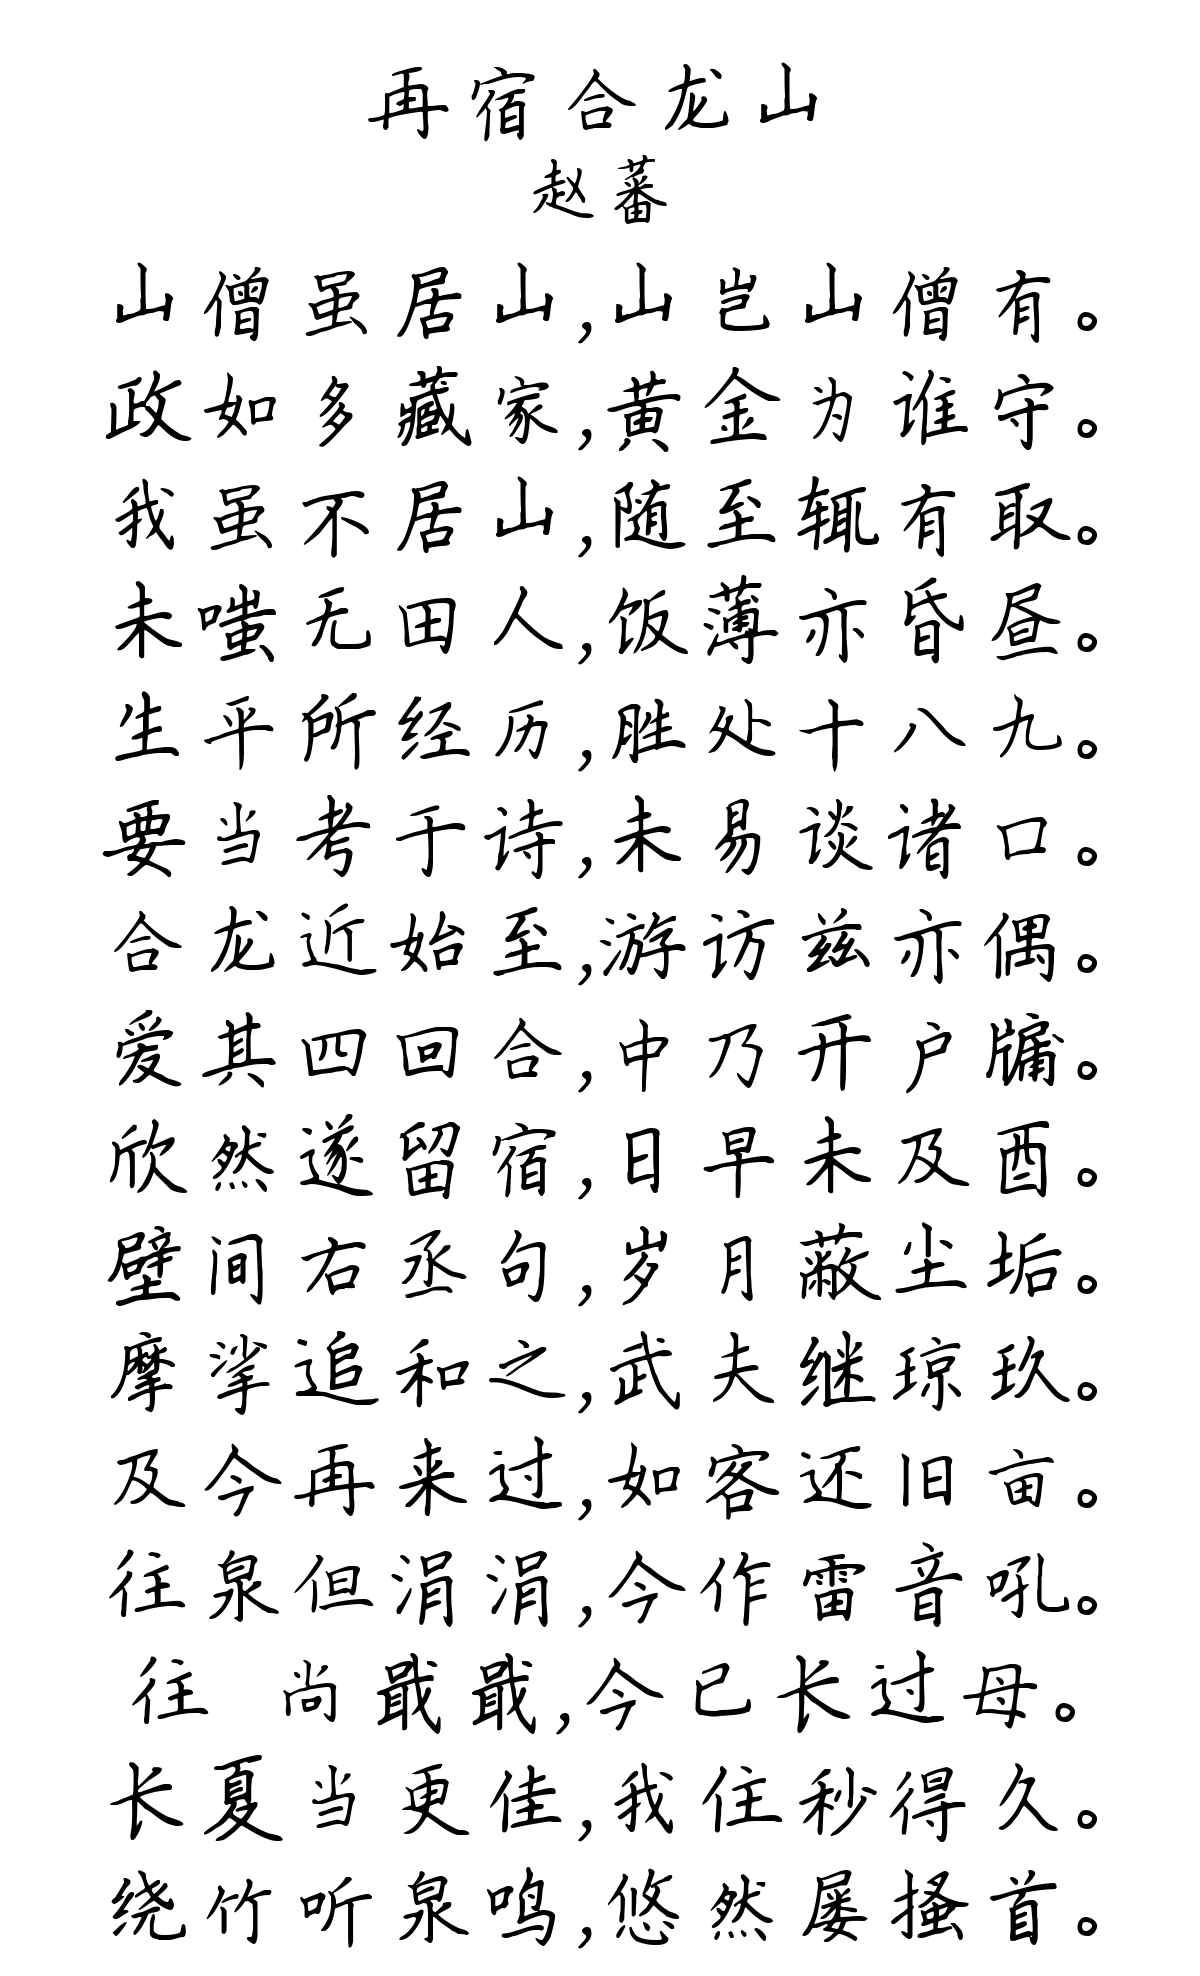 再宿合龙山
赵蕃
山僧虽居山,山岂山僧有。
政如多藏家,黄金为谁守。
我虽不居山,随至辄有取。
未嗤无田人,饭薄亦昏昼。
生平所经历,胜处十八九。
要当考于诗,未易谈诸口。
合龙近始至,游访兹亦偶。
爱其四回合,中乃开户牖。
欣然遂留宿,日早未及酉。
壁间右丞句,岁月蔽尘垢。
摩挲追和之,武夫继琼玖。
及今再来过,如客还旧亩。
往泉但涓涓,今作雷音吼。
往 尚戢戢,今已长过母。
长夏当更佳,我住秒得久。
绕竹听泉鸣,悠然屡搔首。